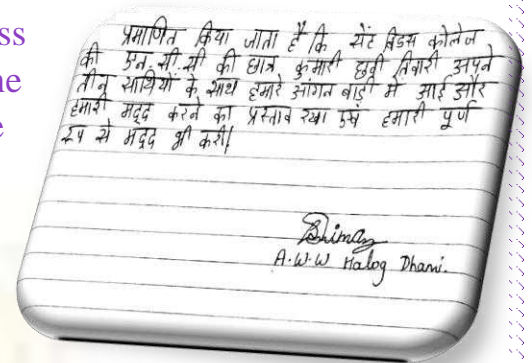 ss
ne
e
प्रमाणित किया जाता है कि सेंट बिडस कोलेज
की एन.सी.सी की छात्र कुमारी छवी तिवारी अपने
तीन साथियों के साथ हमारे आंगन बाड़ी में आई और
हमारी मद्द करने का प्रस्ताव रखा एवं हमारी पूर्ण
रूप से मद्द भी करी।
A.W.W Halog Dhami.